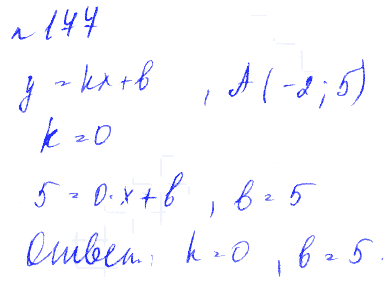 № 177
y = kx + b , A(-2; 5)
k = 0
5 = 0·x + b , b = 5
Ответ: k = 0 , b = 5.